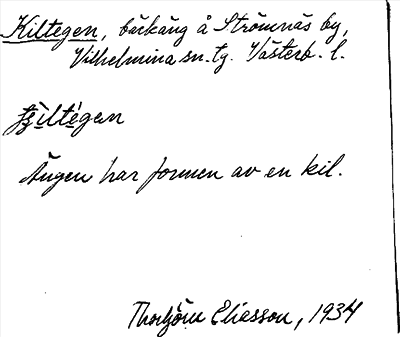 Kiltegen, bäckäng å Strömnäs by,
Vilhelmina sn. tg. Västerb. l.
Ängen har formen av en kil.
Thorbjörn Eliasson, 1934